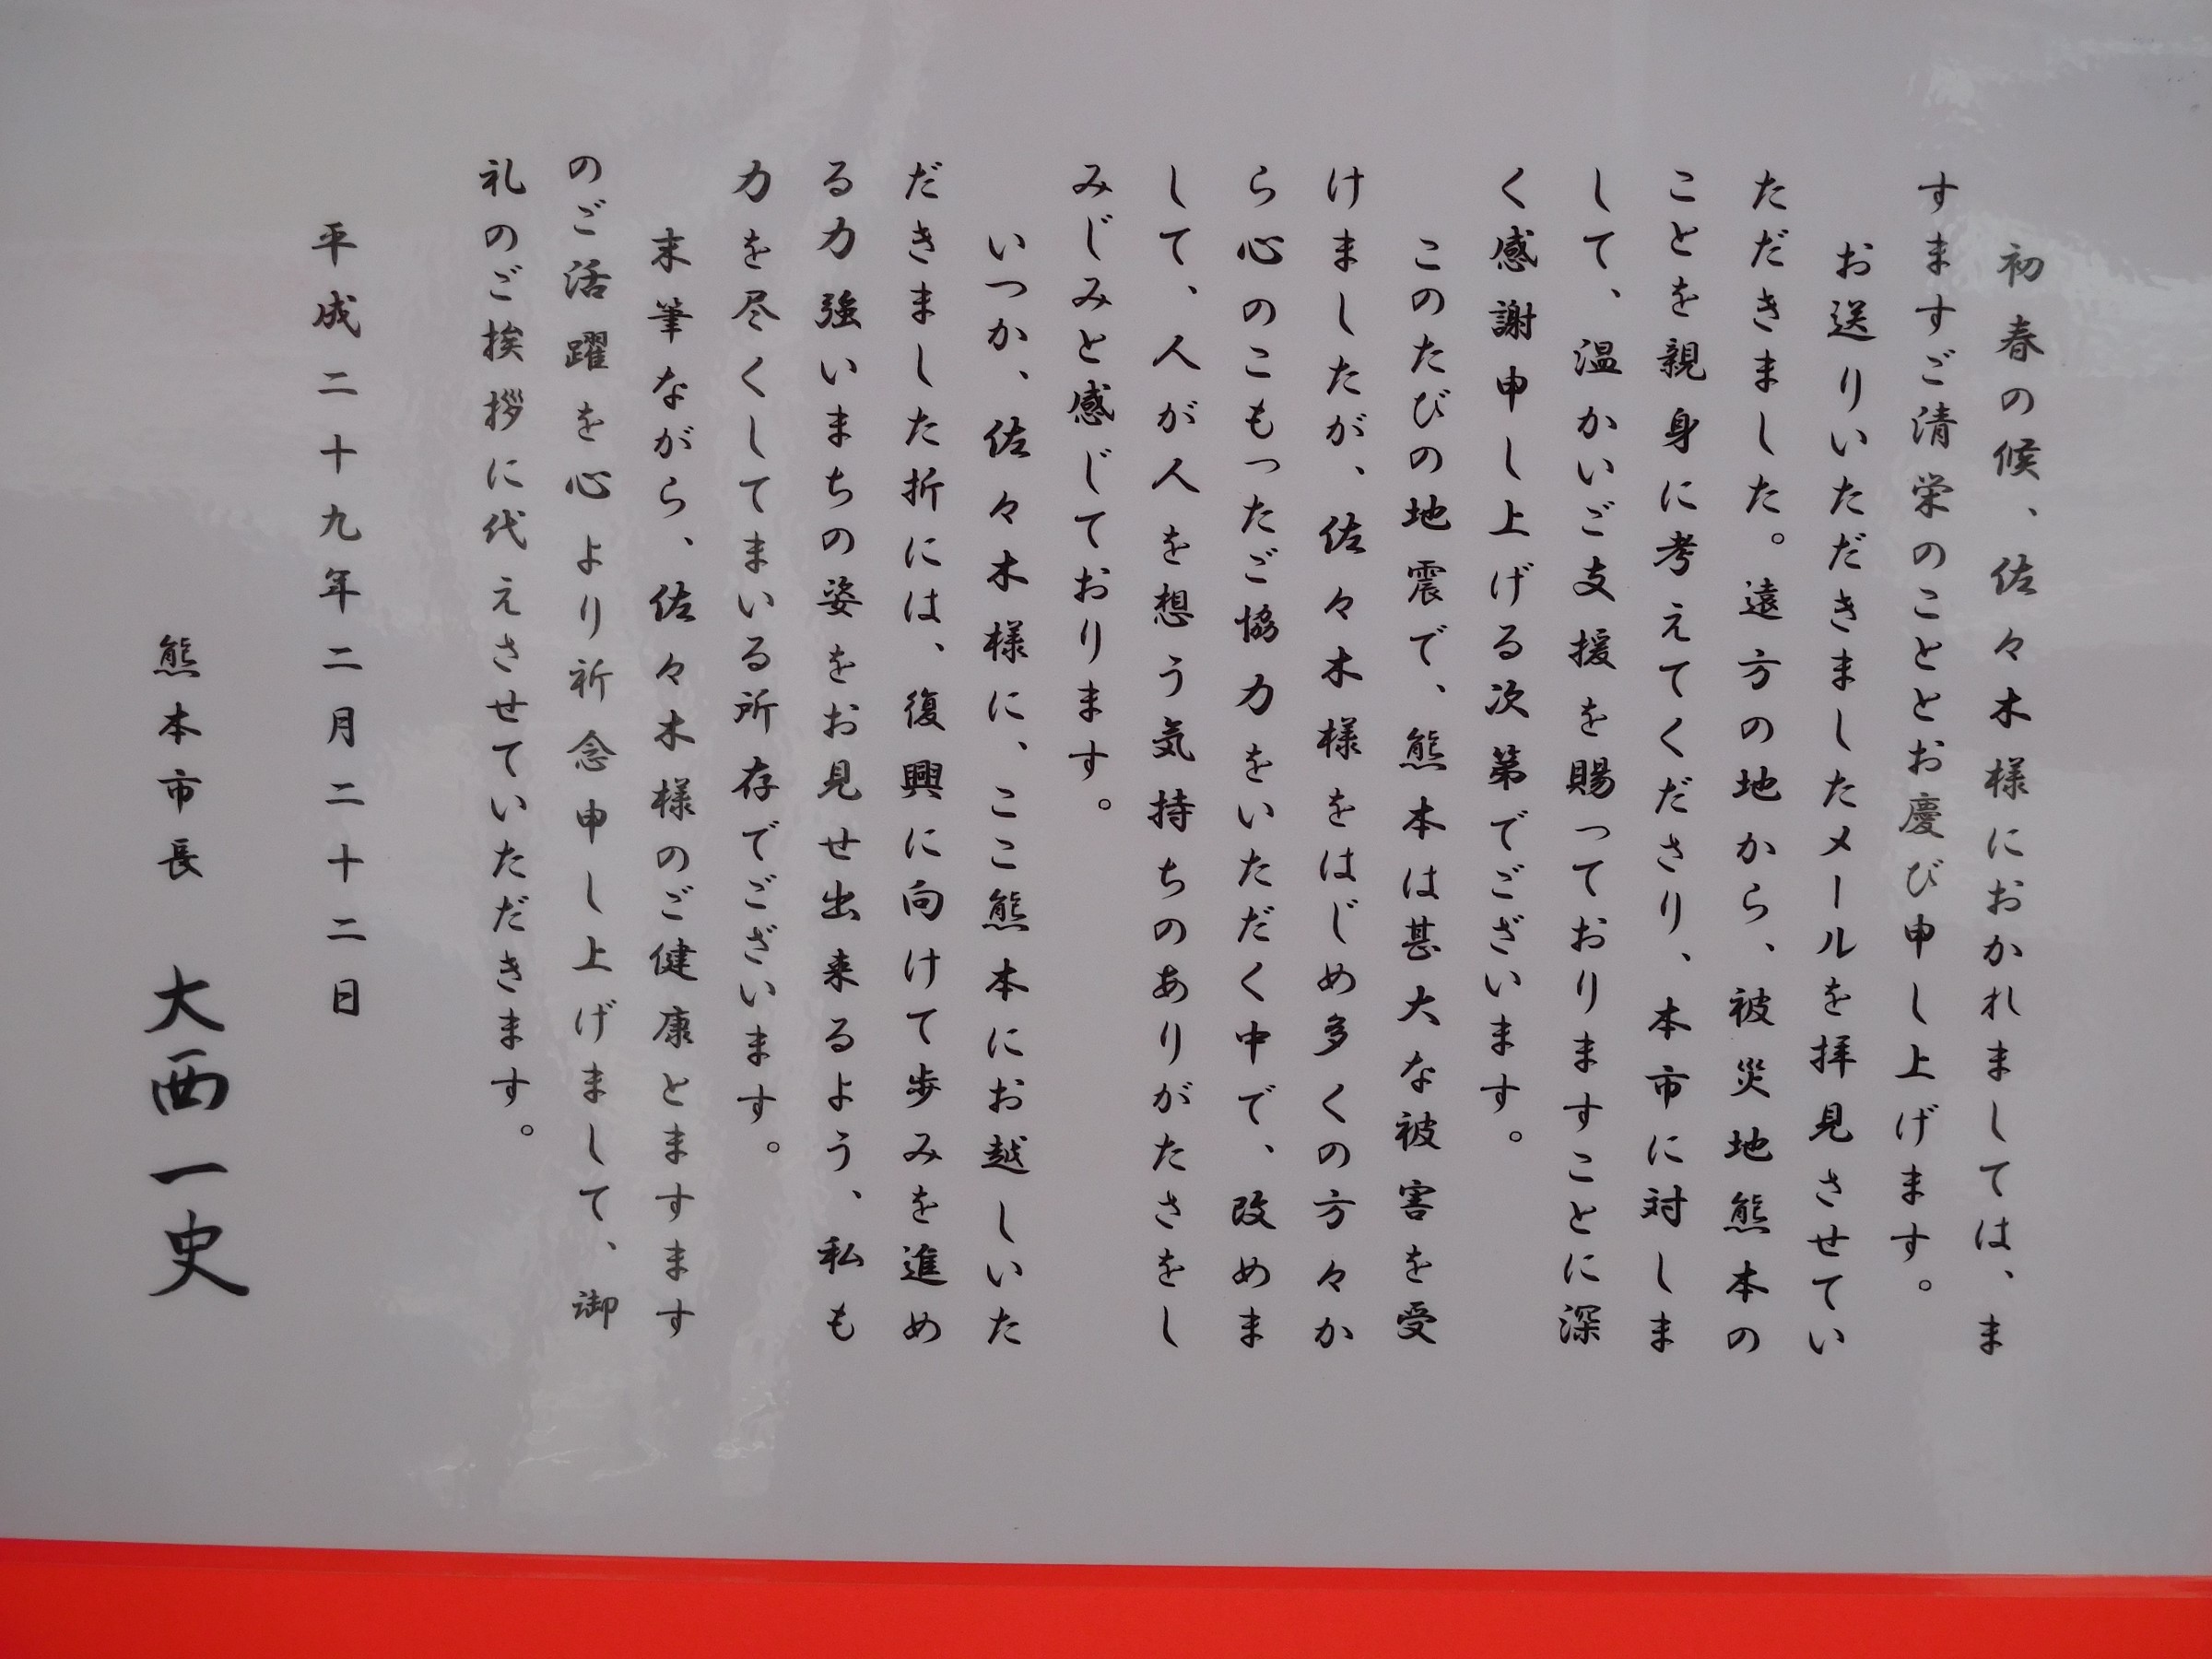 初春の候、佐々木様におかれましては、ま
すますご清栄のこととお慶び申し上げます。
お送りいただきましたメールを拝見させてい
ただきました。遠方の地から、被災地熊本の
ことを親身に考えてくださり、本市に対しま
して、温かいご支援を賜っておりますことに深
く感謝申し上げる次第でございます。
このたびの地震で、熊本は甚大な被害を受
けましたが、佐々木様をはじめ多くの方々か
ら心のこもったご協力をいただく中で、改めま
して、人が人を想う気持ちのありがたさをし
みじみと感じております。
いつか、佐々木様に、ここ熊本にお越しいた
だきました折には、復興に向けて歩みを進め
る力強いまちの姿をお見せ出来るよう、私も
力を尽くしてまいる所存でございます。
末筆ながら、佐々木様のご健康とますます
のご活躍を心より祈念申し上げまして、御
礼のご挨拶に代えさせていただきます。
平成二十九年二月二十二日
熊本市長 大西一史